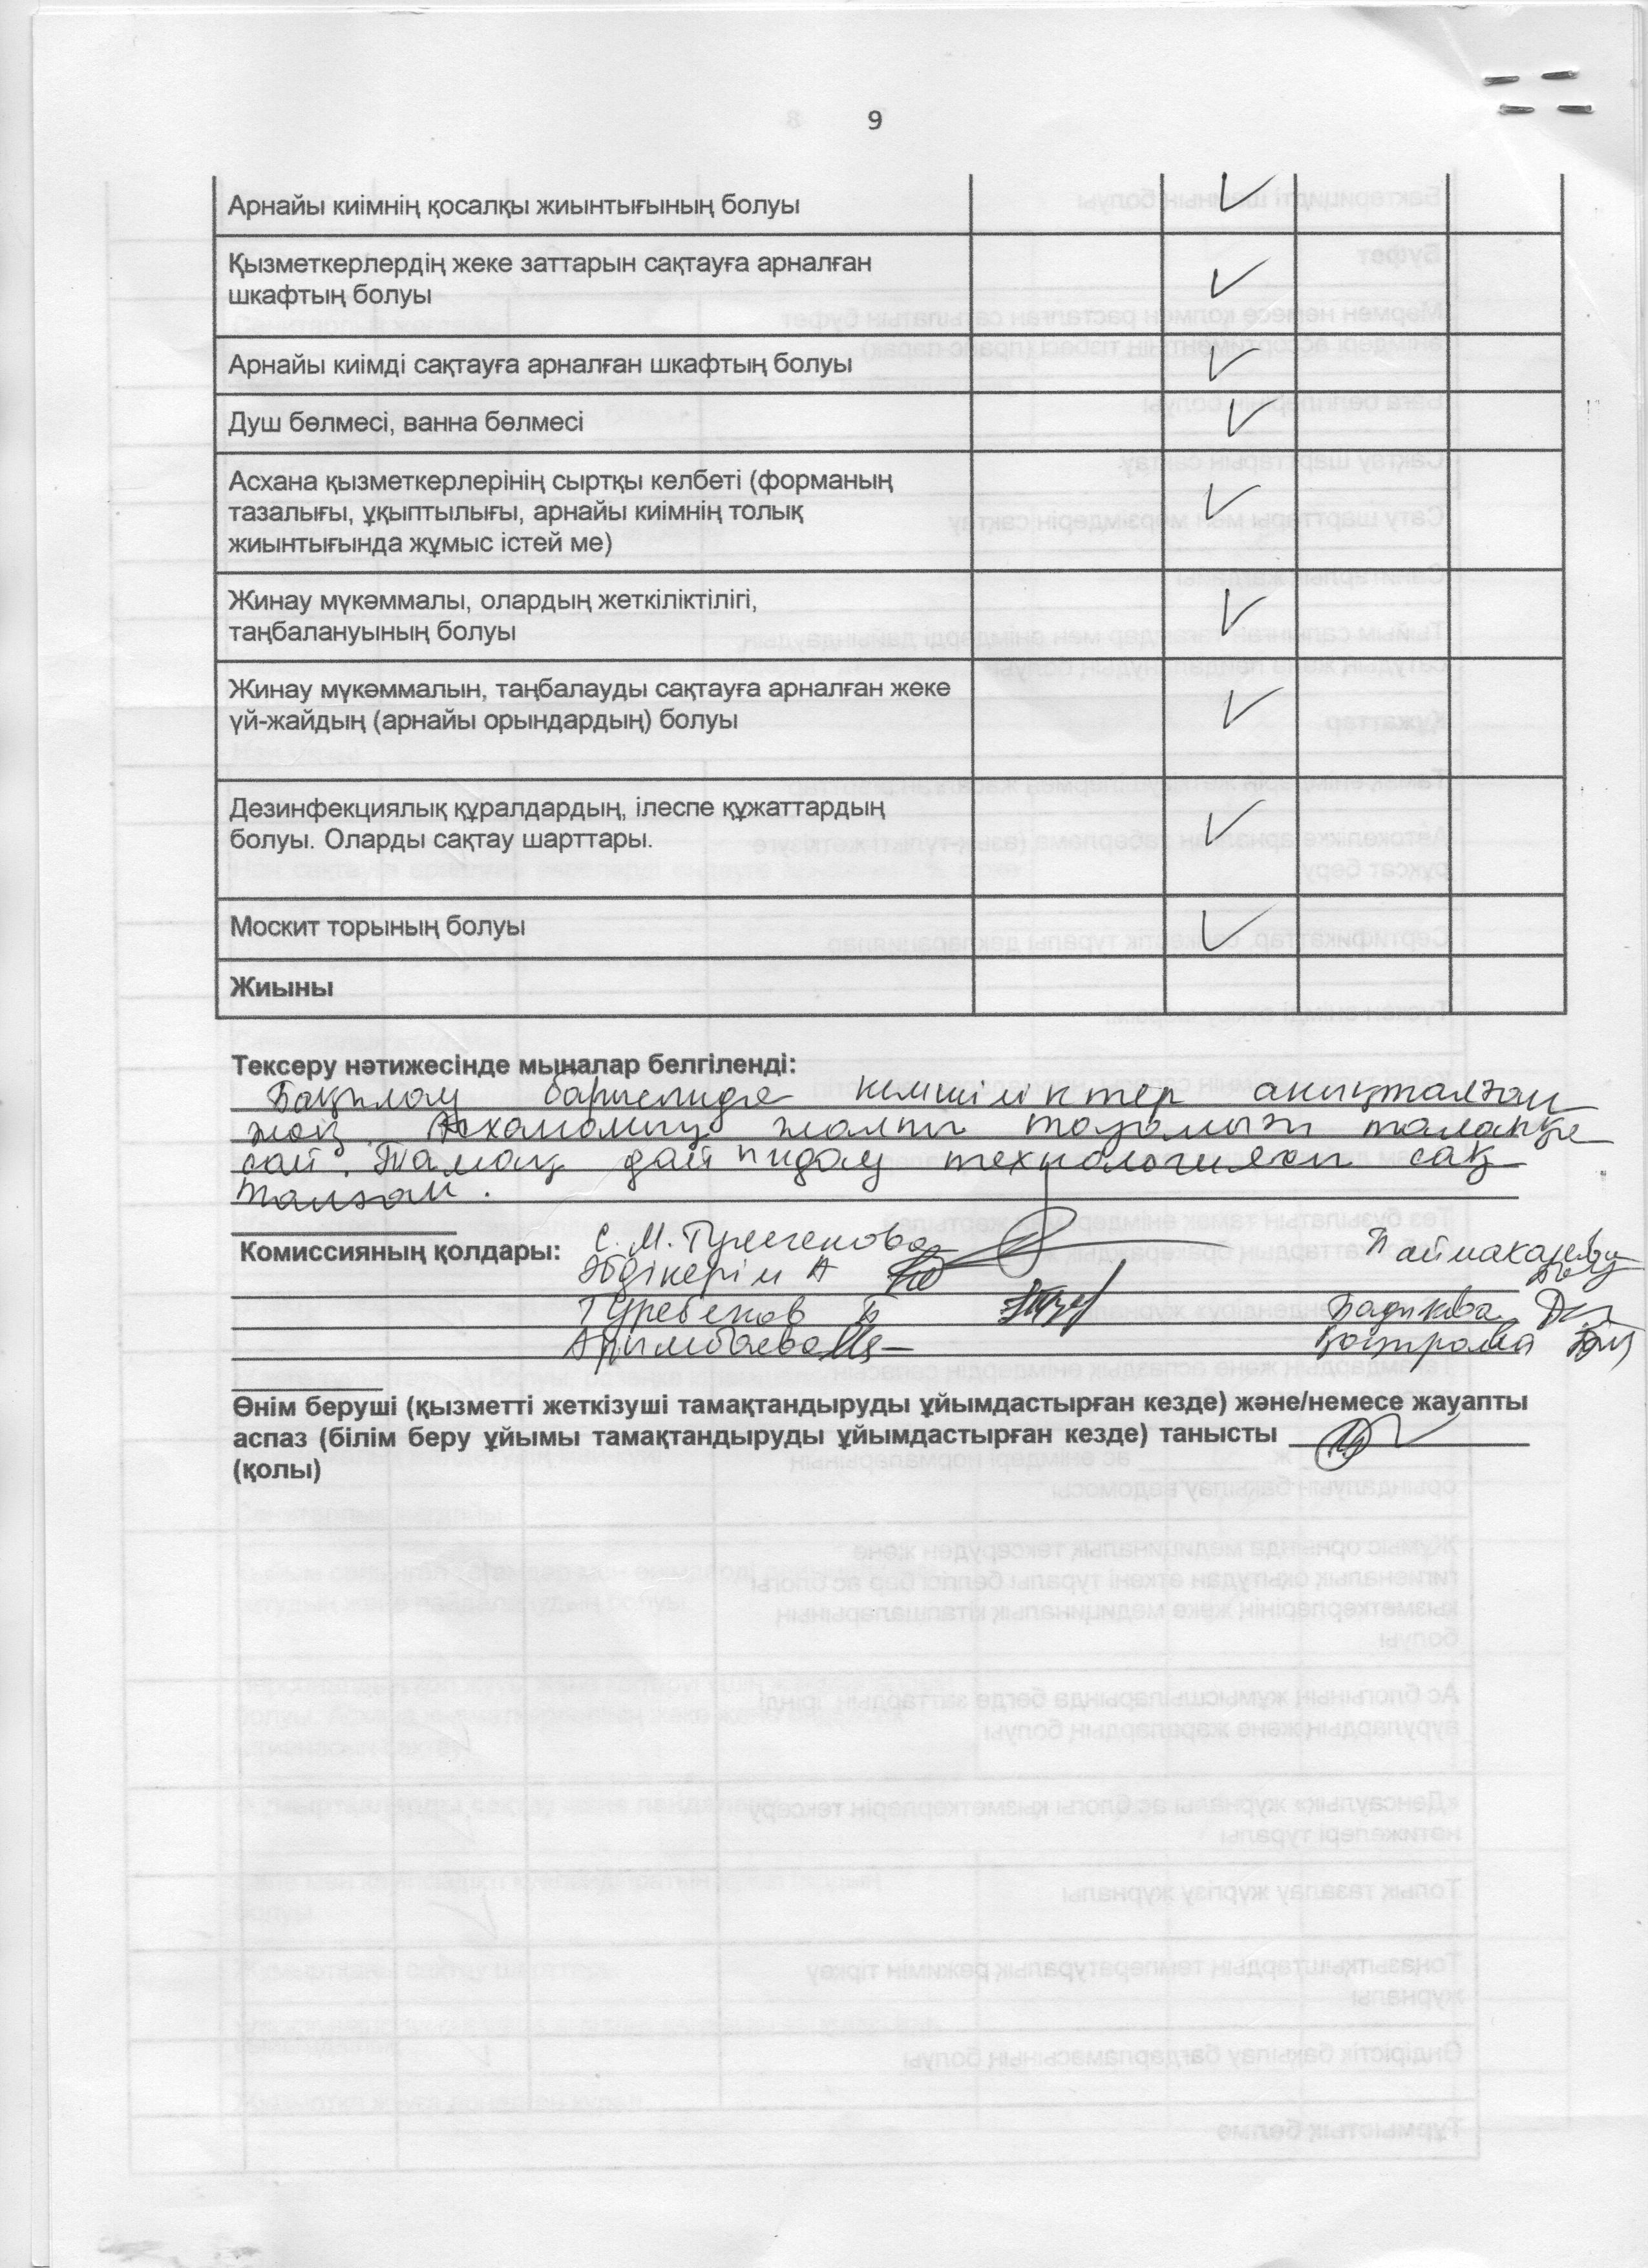 9
Арнайы киімнің қосалқы жиынтығының болуы
Қызметкерлердің жеке заттарын сақтауға арналған
шкафтың болуы
Арнайы киімді сақтауға арналған шкафтың болуы
Душ бөлмесі, ванна бөлмесі
Асхана қызметкерлерінің сыртқы келбеті (форманың
тазалығы, ұқыптылығы, арнайы киімнің толық
жиынтығында жұмыс істей ме)
Жинау мүкәммалы, олардың жеткіліктілігі,
таңбалануының болуы
Жинау мүкәммалын, таңбалауды сақтауға арналған жеке
үй-жайдың (арнайы орындардың) болуы
Дезинфекциялық құралдардың, ілеспе құжаттардың
болуы. Оларды сақтау шарттары.
Москит торының болуы
Жиыны
Тексеру нәтижесінде мыналар белгіленді:
Бақылау барысында кемшіліктер анықталған
жоқ. Асхананың жалпы тазалығы талапқа
сай. Тамақ дайындау технологиясы сақ
талған.
Комиссияның қолдары: С. М.
Әбдікерім А
Туребеков Б
Арымбаева
Өнім беруші (қызметті жеткізуші тамақтандыруды ұйымдастырған кезде) және/немесе жауапты
аспаз (білім беру ұйымы тамақтандыруды ұйымдастырған кезде) танысты
(қолы)